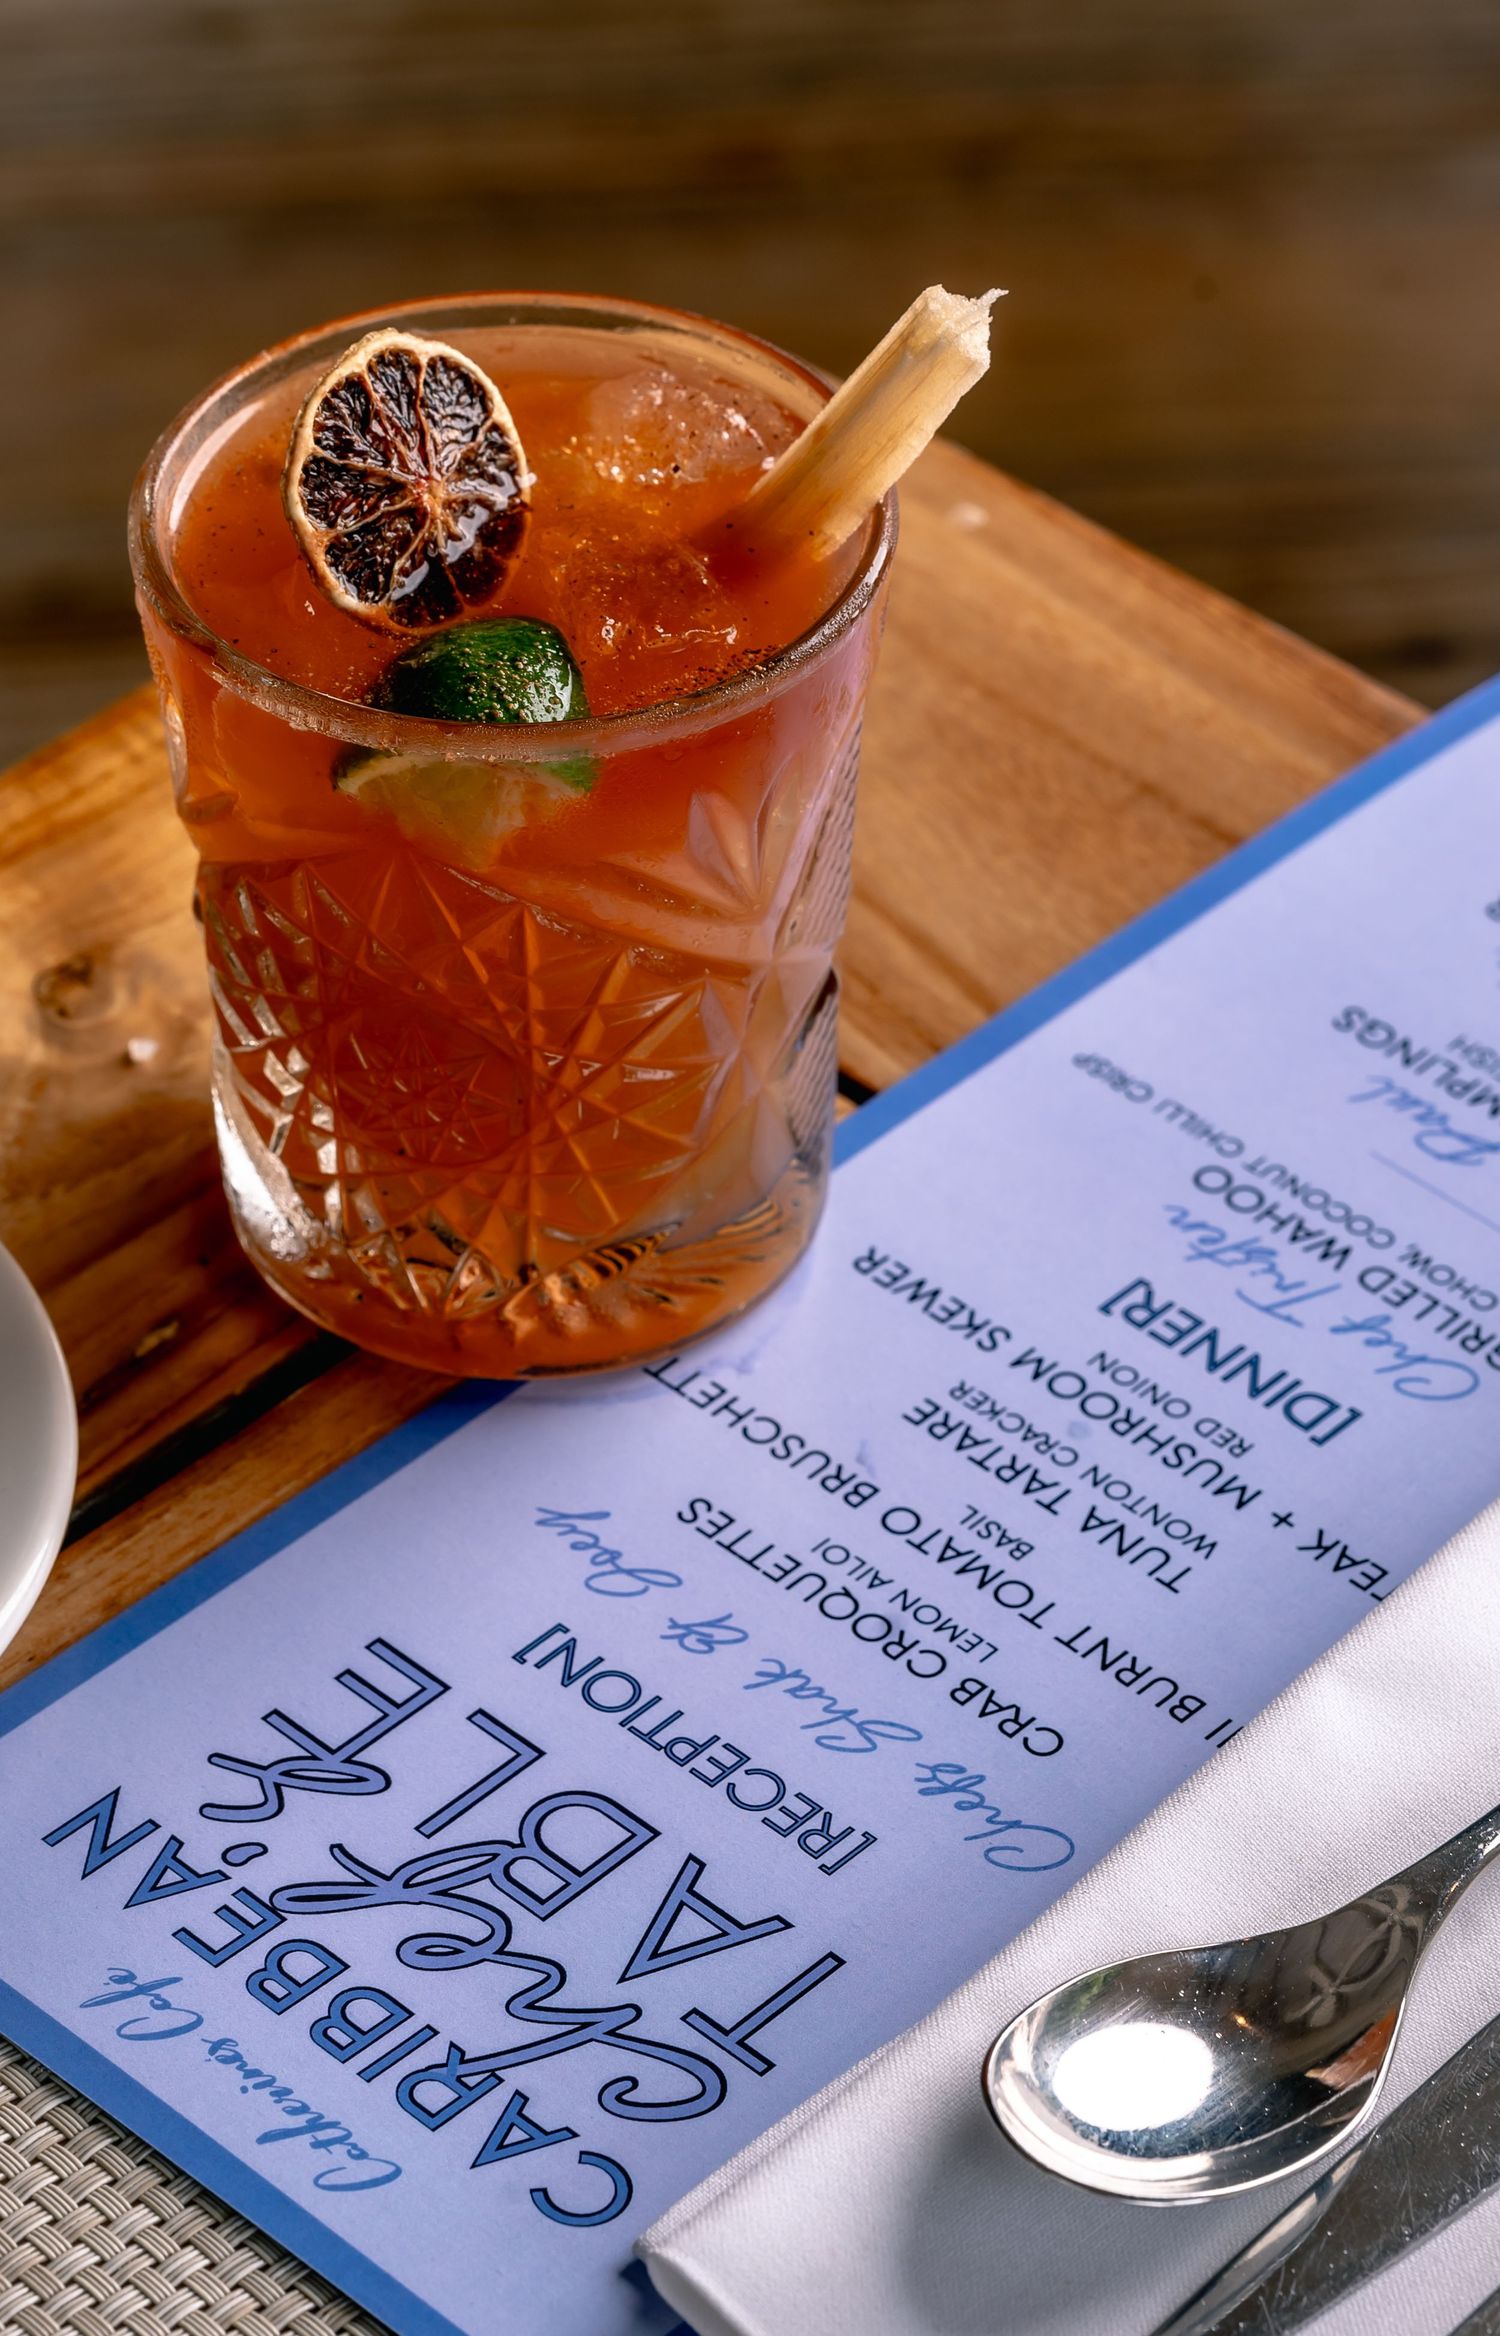 Catherine's Café
CARIBBEAN
Chef's
TABLE
[RECEPTION]
Chefs Shak & Joey
CRAB CROQUETTES
LEMON AILOI
BURNT TOMATO
BASIL
TUNA TARTARE
WONTON CRACKER
+ MUSHROOM SKEWER
RED ONION
[DINNER]
Chef Tristen
GRILLED WAHOO
CHOW, COCONUT CHILLI CRISP
Paul